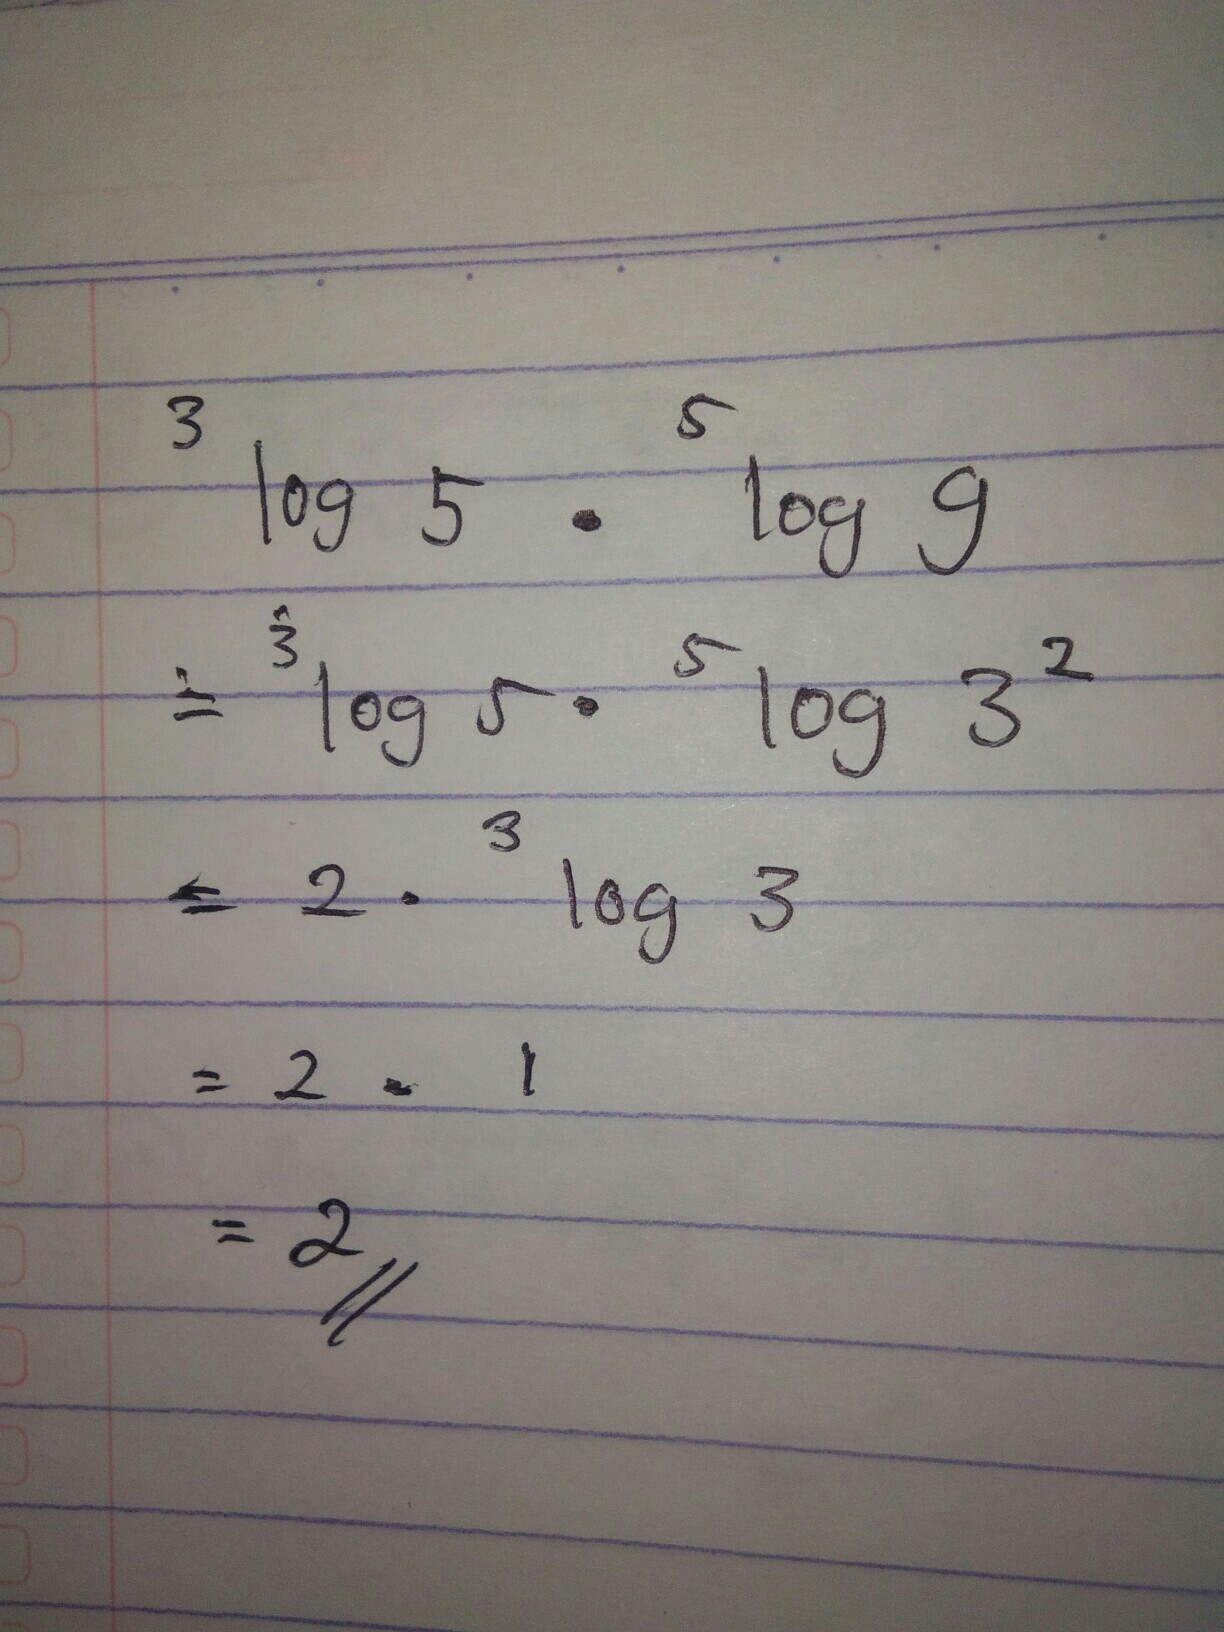 ³log 5 · ⁵log 9
= ³log 5 · ⁵log 3²
= 2 · ³log 3
= 2 · 1
= 2 //